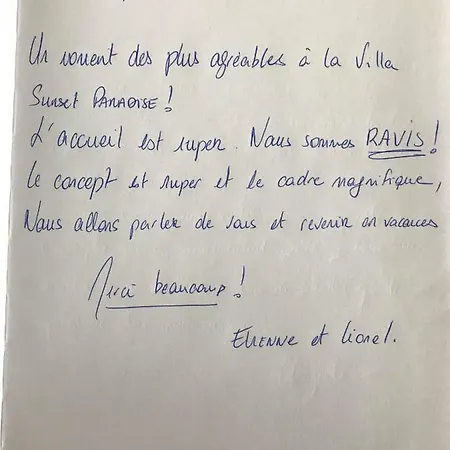 Un moment des plus agréables à la Villa
Sunset PARADISE !
L'accueil est super. Nous sommes RAVIS !
Le concept est super et le cadre magnifique,
Nous allons parler de vous et revenir en vacances
Merci beaucoup !
ETIENNE et Lionel.